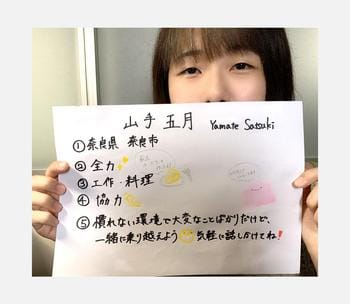 山手 五月 Yamate Satsuki
①奈良県 奈良市
②全力
③工作・料理
④協力
⑤慣れない環境で大変なことばかりだけど、
一緒に乗り越えよう 気軽に話しかけてね!